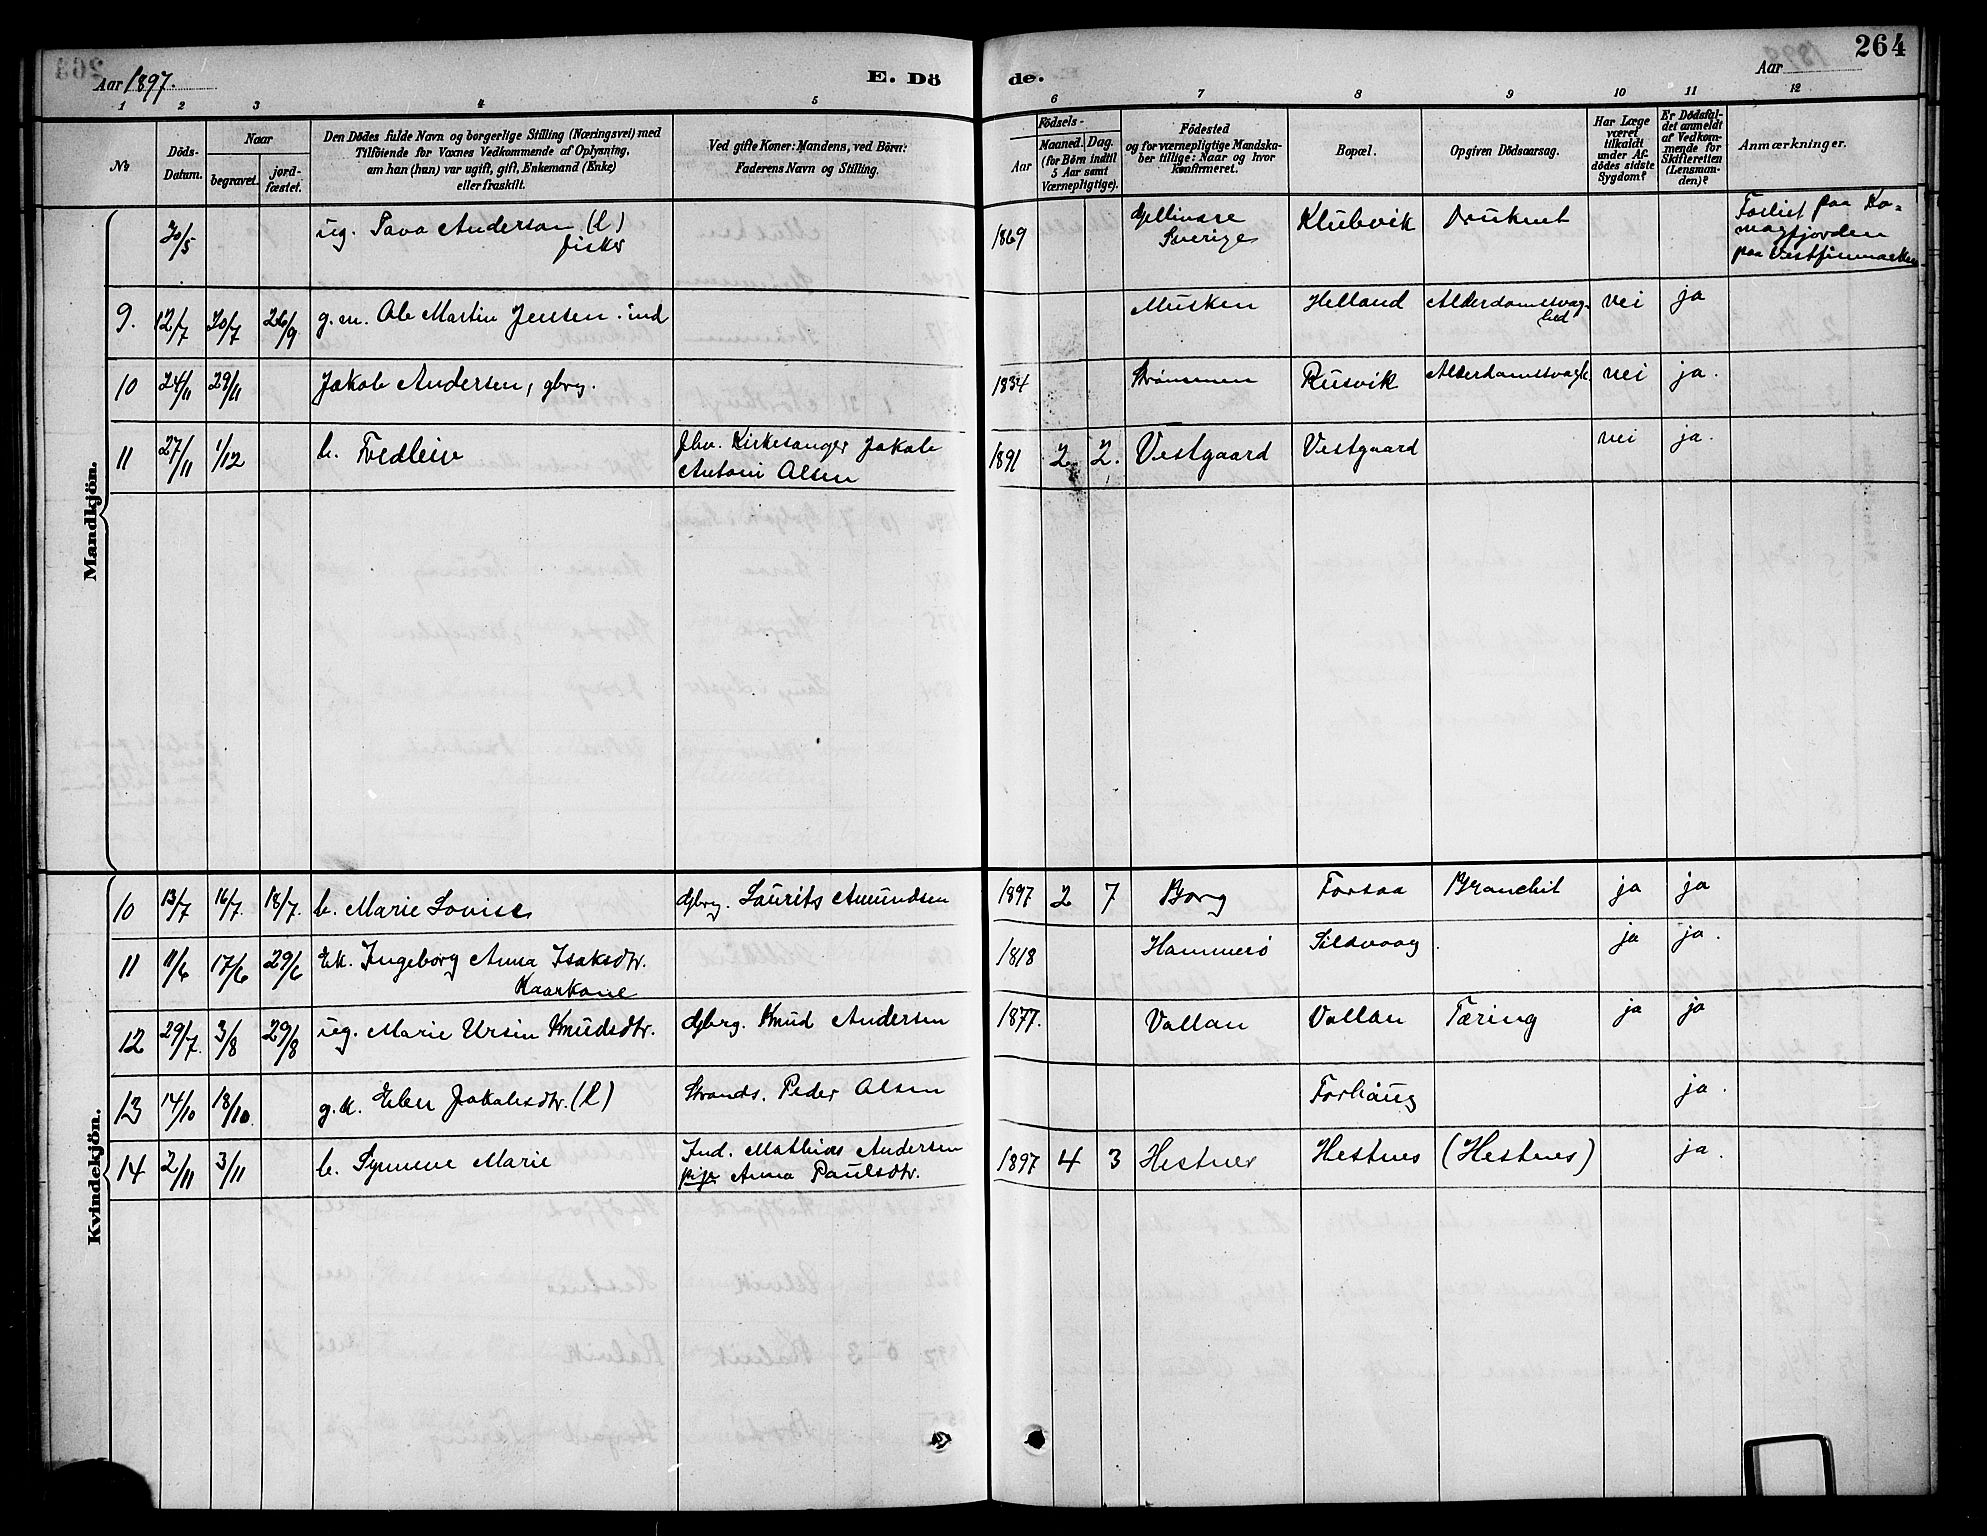 264
Aar 1897.
E. Dö
de.
Aar
1 2 3 4 5 6 7 8 9 10 11 12
№
Döds-
Datum.
Naar
begravet.
jord-
fæstet.
Den Dödes fulde Navn og borgerlige Stilling (Næringsvei) med
Tilföiende for Voxnes Vedkommende af Oplysning,
om han (hun) var ugift, gift, Enkemand (Enke)
eller fraskilt.
Ved gifte Koner: Mandens, ved Börn:
Faderens Navn og Stilling.
Födsels-
Aar
Maaned. Dag.
(for Børn indtil
5 Aar samt
Værnepligtige).
Födested
og for værnepligtige Mandska-
ber tillige: Naar og hvor
konfirmeret.
Bopæl.
Opgiven Dödsaarsag.
Har Læge
været
tilkaldt
under Af-
dödes sidste
Sygdom?
Er Dödsfal-
det anmeldt
af Vedkom-
mende for
Skifteretten
(Lensman-
den)?
Anmærkninger.
Mandkjön.
30/5 ug. Pava Anderson (l) fisker 1869 Gjellivare Sverige Klubvik Druknet Forlist paa Ko=
magfjorden
paa Vestfinmarken
9. 12/7 30/7 26/9 g.m. Ole Martin Jensen. ind Musken Helland Alderdomssvag-
hed nei ja
10 24/11 29/11 Jakob Andersen, gbrg. 1834 Strømmen Rusvik Alderdomssvagh. nei ja.
11 27/11 1/12 b. Fredleiv Kirkesanger Jakob
Antoni Olsen 1891 2 2. Vestgaard Vestgaard nei ja.
Kvindekjön.
10 13/7 16/7. 18/7. b. Marie Lovise Gbrg. Laurits Amundsen 1897 2 7 Borg Forsaa Bronchit ja ja
11 11/6 17/6 29/6 Ek. Ingeborg Anna Isaksdtr.
Kaarkone 1818 Hammerø Sildvaag ja ja.
12 29/7. 3/8 29/8 ug. Marie Ursin Knudsdtr. Gbrg. Knud Andersen 1877. Vollan Vollan Tæring ja ja
13 14/10 18/10. g.k. Elen Jakobsdtr. (l) Strands. Peder Olsen Forhaug ja.
14 2/11 3/11 b. Synneve Marie Ind. Mathias Andersen
pige Anna Paulsdtr. 1897 4 3 Hestnes Hestnes (Hestnes) ja.